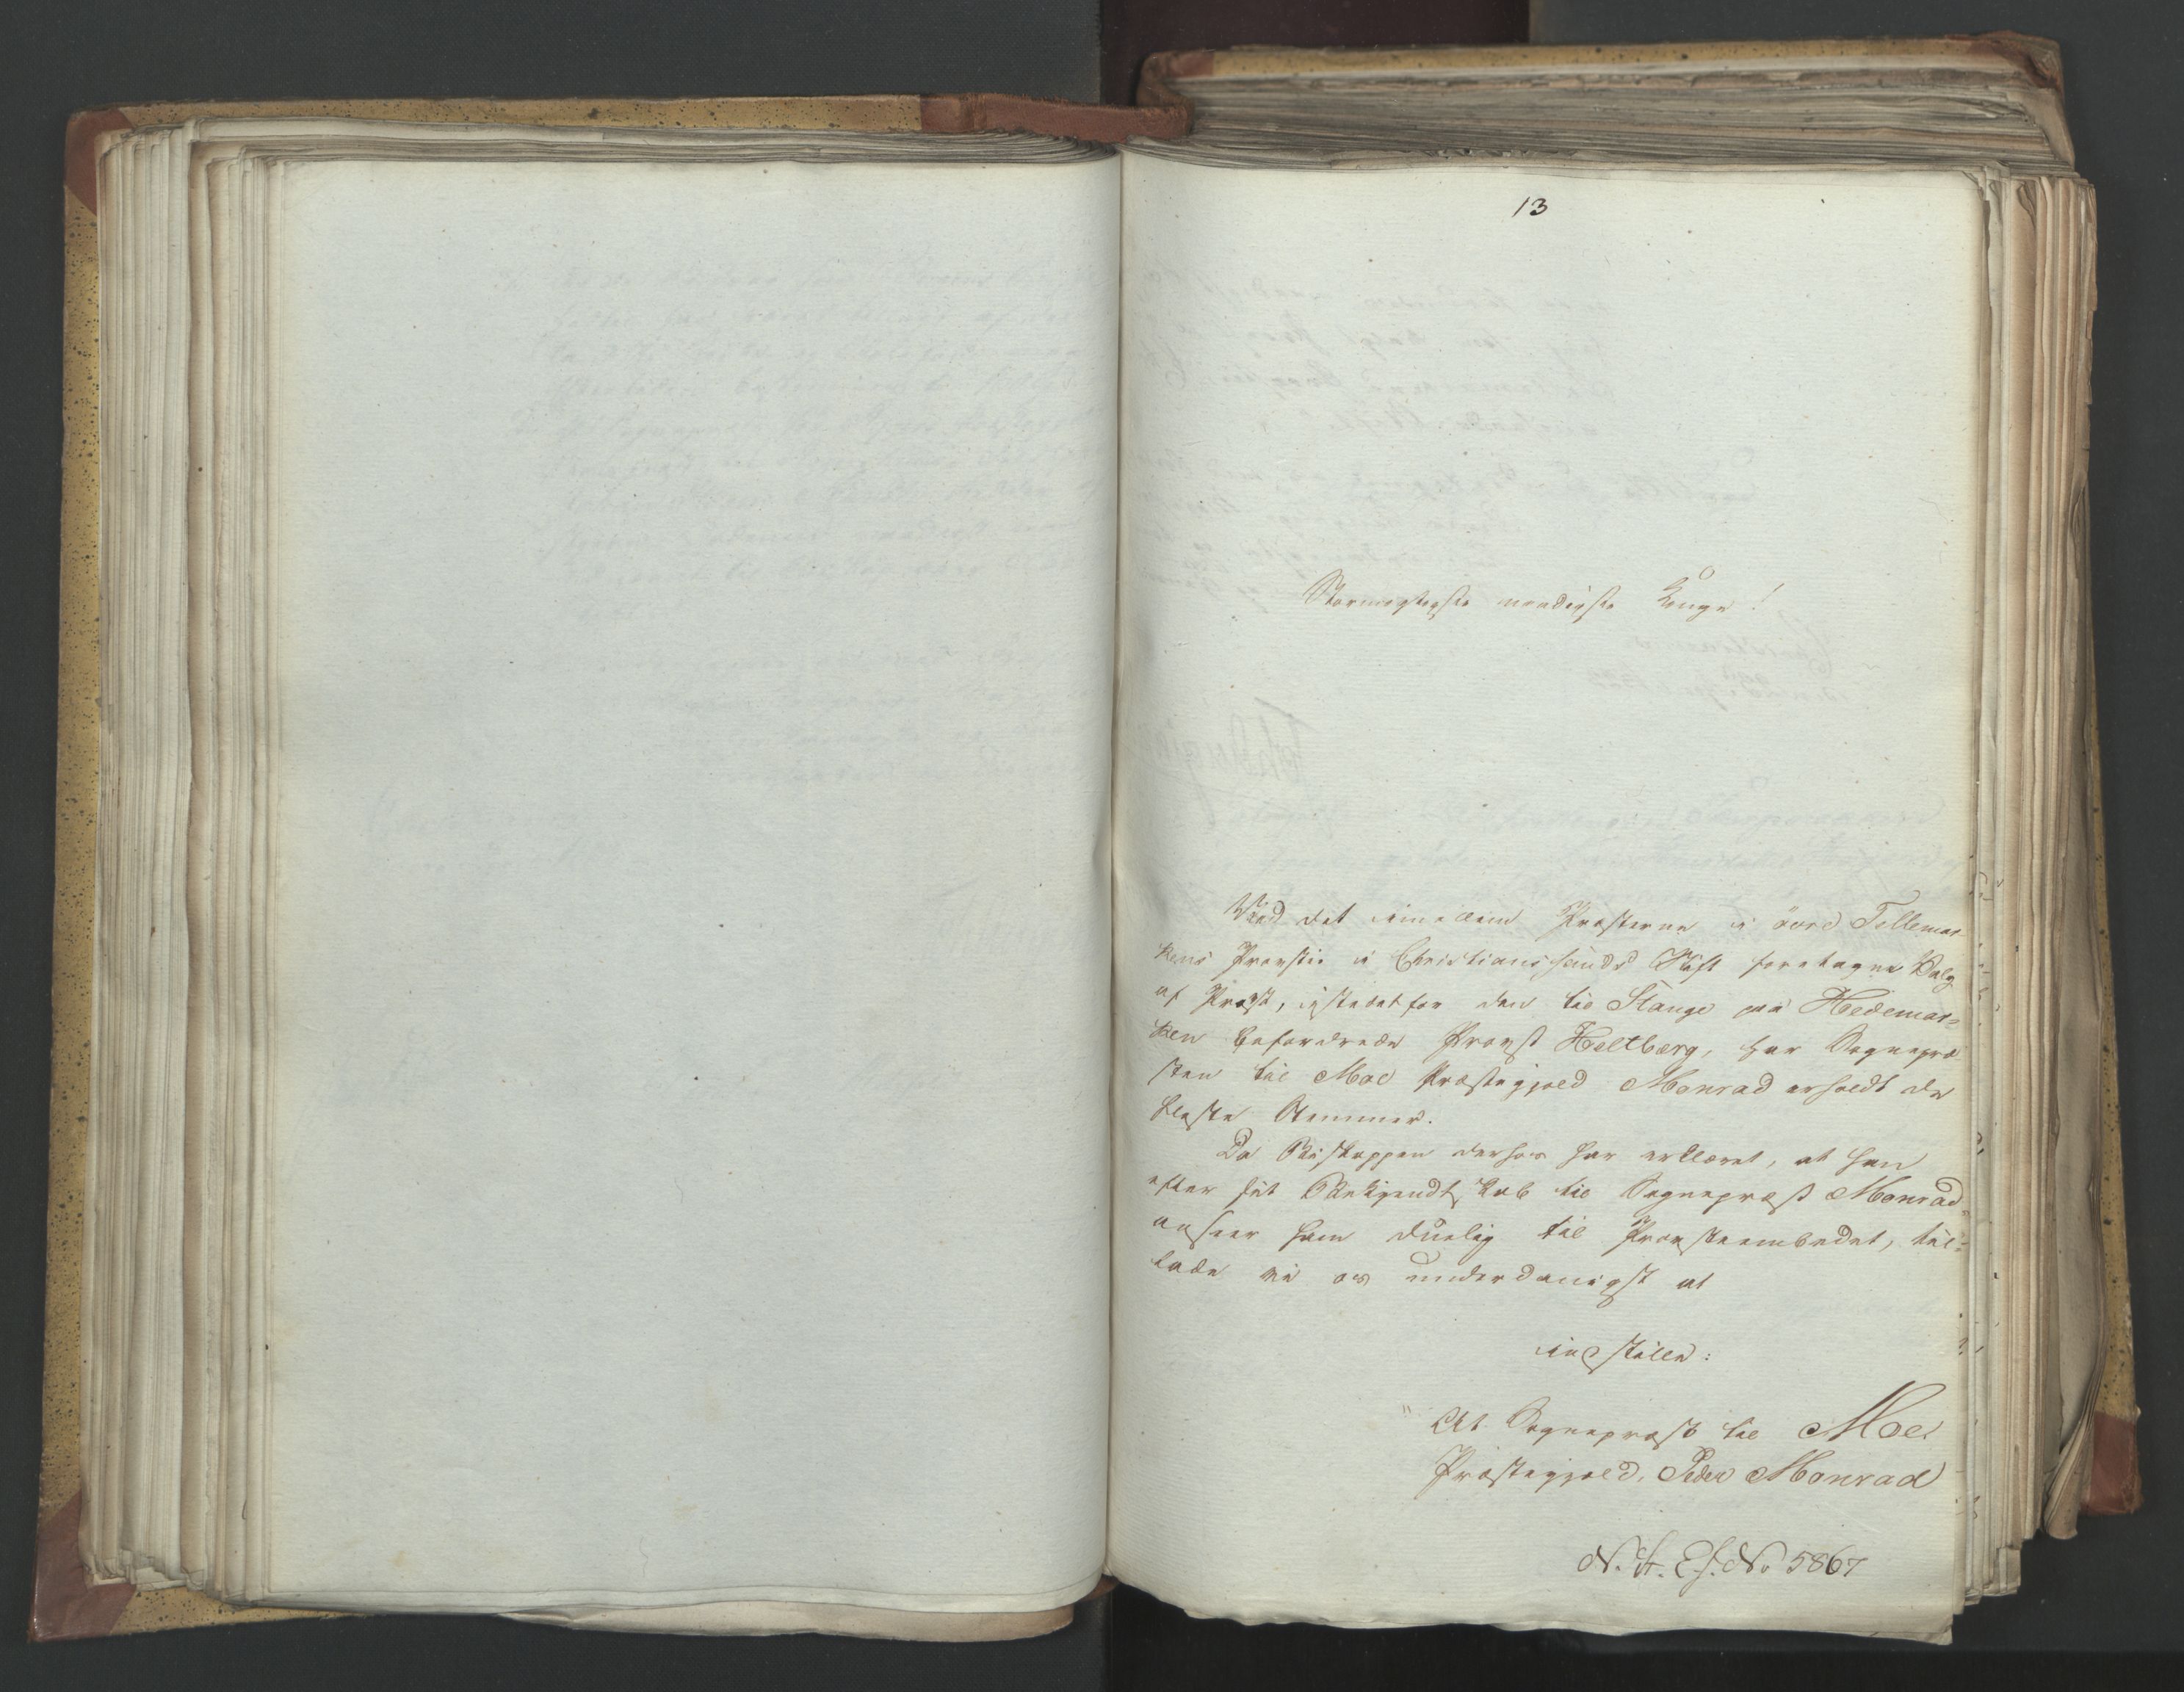 13
Stormægtigste naadigste Konge!
Ved det imellem Præsterne i övre Tellemar
kens Provstie i Christianssands Stift foretagne Valg
af Provst, istedetfor den til Stange paa Hedemar=
ken befordrede Provst Heltberg, har Sognepræ
sten til Moe Præstegjeld Monrad erholdt de
fleste Stemmer.
Da Biskoppen derhos har erklæret, at han
efter sit Bekjendtskab til Sognepræst Monrad
anseer ham duelig til Provsteembedet, til=
lade vi os underdanigst at
indstille:
" At Sognepræst til Moe
Præstegjeld, Peder Monrad
N. St. Ex. No 5867